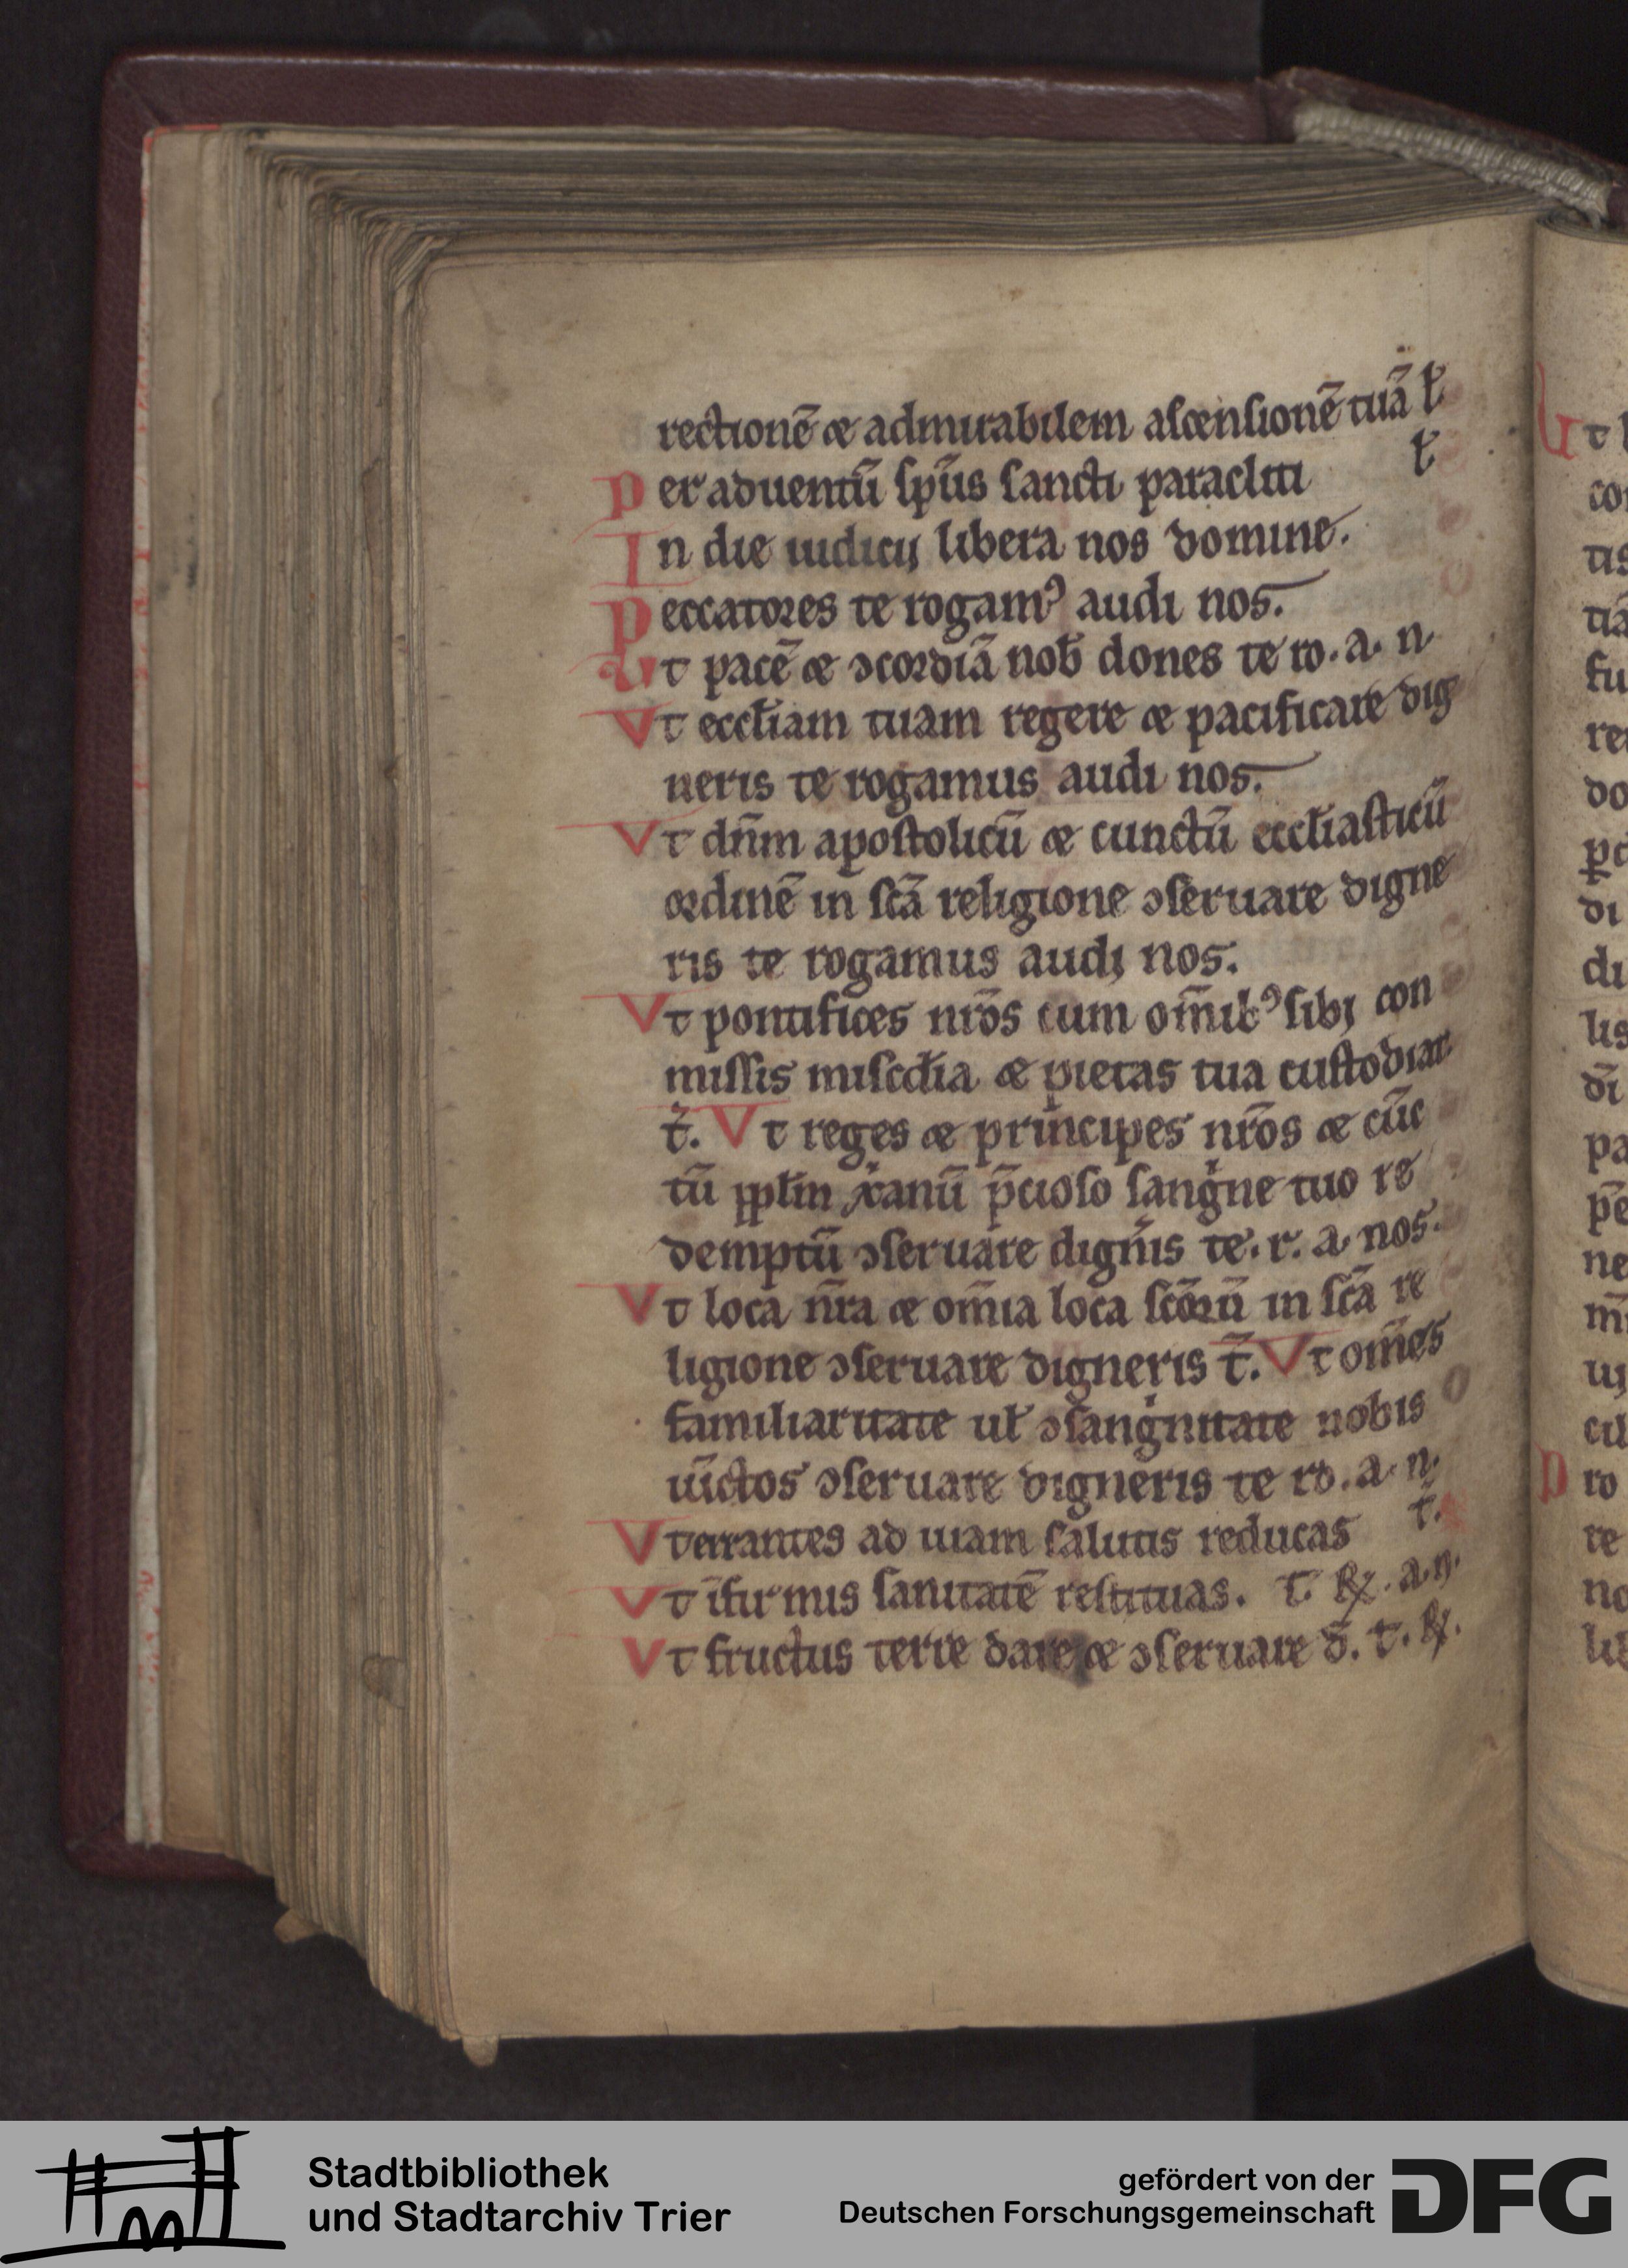 rectionē & admirabilem ascensionē tuā ł
Per aduentū sp̄us sancti paracliti ł
In die iudicij libera nos domine.
Peccatores te rogamꝰ audi nos.
Ut pacē & ꝯcordiā nob̄ dones te ro. a. n.
Vt eccƚiam tuam regere & pacificare dig
neris te rogamus audi nos.
Vt dn̄m apostolicū & cunctū eccƚiasticū
ordinē in sc̄a religione ꝯseruare digne
ris te rogamus audi nos.
Vt pontifices nr̄os cum om̄ibꝰ sibi con
missis misc̄dia & pietas tua custodiat
t̄. Vt reges & principes nr̄os & cūc
tū ppƚm xp̄anū p̄cioso sangͥne tuo re
demptū ꝯseruare dign̄is te. r. a. nos.
Vt loca nr̄a & om̄ia loca sc̄orū in sc̄a re
ligione ꝯseruare digneris t̄. Vt om̄es
familiaritate uƚ ꝯsangͥnitate nobis
iūctos ꝯseruare digneris te ro. a. n.
Vt errantes ad uiam salutis reducas t̄.
Vt īfirmis sanitatē restituas. t. R. a. n.
Vt fructus terre dare & ꝯseruare d̄. t. R.
Stadtbibliothek
und Stadtarchiv Trier
gefördert von der
Deutschen Forschungsgemeinschaft
DFG